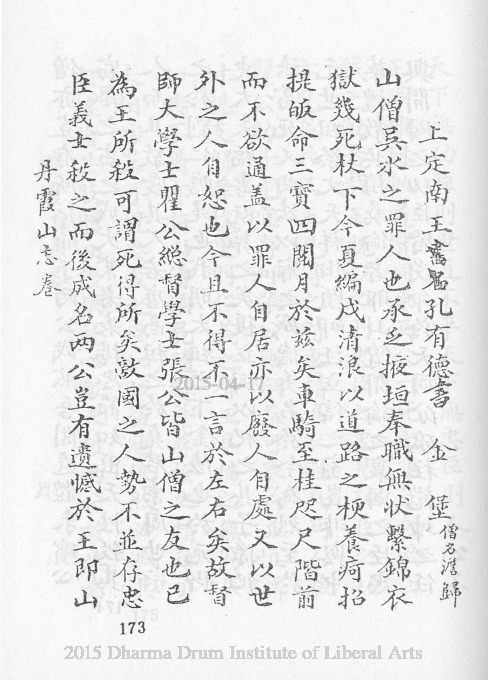 上定南王舊名孔有德書　金堡僧名澹歸
山僧吳水之罪人也承乏掖垣奉職無状繫錦衣
獄幾死杖下今夏編戍清浪以道路之梗養疴招
提皈命三寶四閱月於兹矣車騎至桂咫尺階前
而不欲通盖以罪人自居亦以廢人自處又以世
外之人自恕也今且不得不一言於左右矣故督
師大學士瞿公總督學士張公皆山僧之友也已
為王所殺可謂死得所矣敵國之人勢不並存忠
臣義士殺之而後成名两公豈有遺憾於王即山
丹霞山志卷
173
2015-04-17
2015 Dharma Drum Institute of Liberal Arts